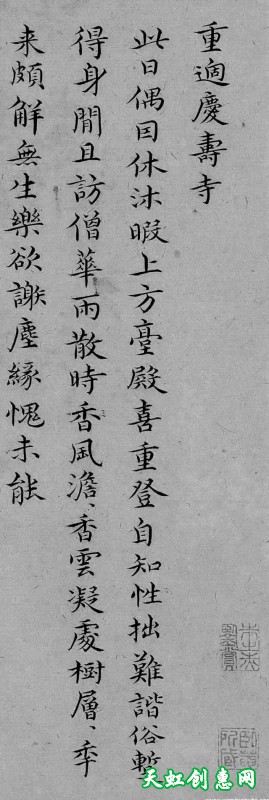 重適慶壽寺
此日偶因休沐暇上方臺殿喜重登自知性拙難諧俗暫
得身閒且訪僧華雨散時香風澹、香雲凝處樹層、年
来頗解無生樂欲謝塵緣愧未能
天虹创惠网